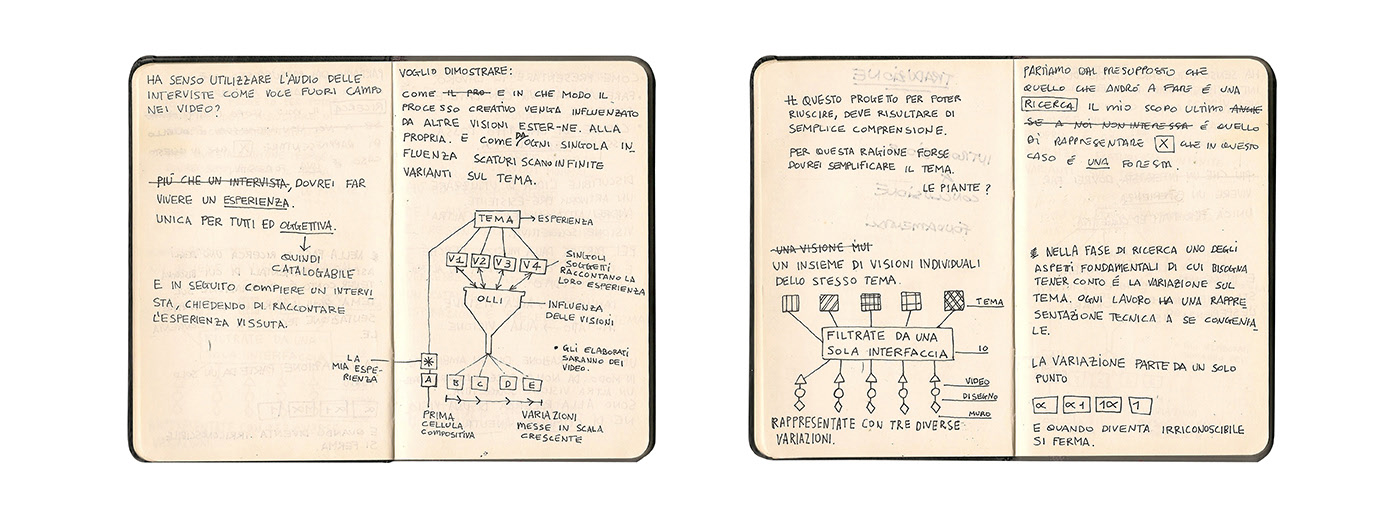 HA SENSO UTILIZZARE L'AUDIO DELLE
INTERVISTE COME VOCE FUORI CAMPO
NEI VIDEO?
PIÚ CHE UN INTERVISTA, DOVREI FAR
VIVERE UN ESPERIENZA.
UNICA PER TUTTI ED OGGETTIVA.
QUINDI
CATALOGABILE
E IN SEGUITO COMPIERE UN INTERVI
STA, CHIEDENDO DI RACCONTARE
L'ESPERIENZA VISSUTA.
VOGLIO DIMOSTRARE:
COME IL PRO E IN CHE MODO IL
PROCESSO CREATIVO VENGA INFLUENZATO
DA ALTRE VISIONI ESTER-NE. ALLA
PROPRIA. E COME DA OGNI SINGOLA IN
FLUENZA SCATURISCANO INFINITE
VARIANTI SUL TEMA.
TEMA
ESPERIENZA
V1 V2 V3 V4
SINGOLI
SOGGETTI
RACCONTANO LA
LORO ESPERIENZA
OLLI
INFLUENZA
DELLE VISIONI
• GLI ELABORATI
SARANNO DEI
VIDEO.
LA
MIA ESPE-
RIENZA
*
A B C D E
PRIMA
CELLULA
COMPOSITIVA
VARIAZIONI
MESSE IN SCALA
CRESCENTE
QUESTO PROGETTO PER POTER
RIUSCIRE, DEVE RISULTARE DI
SEMPLICE COMPRENSIONE.
PER QUESTA RAGIONE FORSE
DOVREI SEMPLIFICARE IL TEMA.
LE PIANTE?
UNA VISIONE
UN INSIEME DI VISIONI INDIVIDUALI
DELLO STESSO TEMA.
TEMA
FILTRATE DA UNA
SOLA INTERFACCIA
IO
VIDEO
DISEGNO
MURO
RAPPRESENTATE CON TRE DIVERSE
VARIAZIONI.
PARTIAMO DAL PRESUPPOSTO CHE
QUELLO CHE ANDRÓ A FARE É UNA
RICERCA IL MIO SCOPO ULTIMO ANCHE
SE A NOI NON INTERESSA É QUELLO
DI RAPPRESENTARE X CHE IN QUESTO
CASO É UNA FORESTA
NELLA FASE DI RICERCA UNO DEGLI
ASPETI FONDAMENTALI DI CUI BISOGNA
TENER CONTO É LA VARIAZIONE SUL
TEMA. OGNI LAVORO HA UNA RAPPRE
SENTAZIONE TECNICA A SE CONGENIA
LE.
LA VARIAZIONE PARTE DA UN SOLO
PUNTO
∝ ∝1 1∝ 1
E QUANDO DIVENTA IRRICONOSCIBILE
SI FERMA.